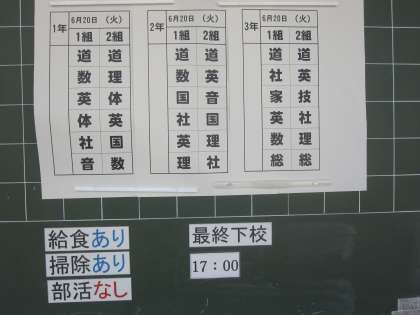 1年 6月20日 (火)
1組 2組
道 道
数 理
英 体
体 英
社 国
音 数
2年 6月20日 (火)
1組 2組
道 道
数 英
国 音
社 国
英 理
理 社
3年 6月20日 (火)
1組 2組
道 道
社 英
家 技
英 社
数 理
総 総
給食あり
掃除あり
部活なし
最終下校
17：00